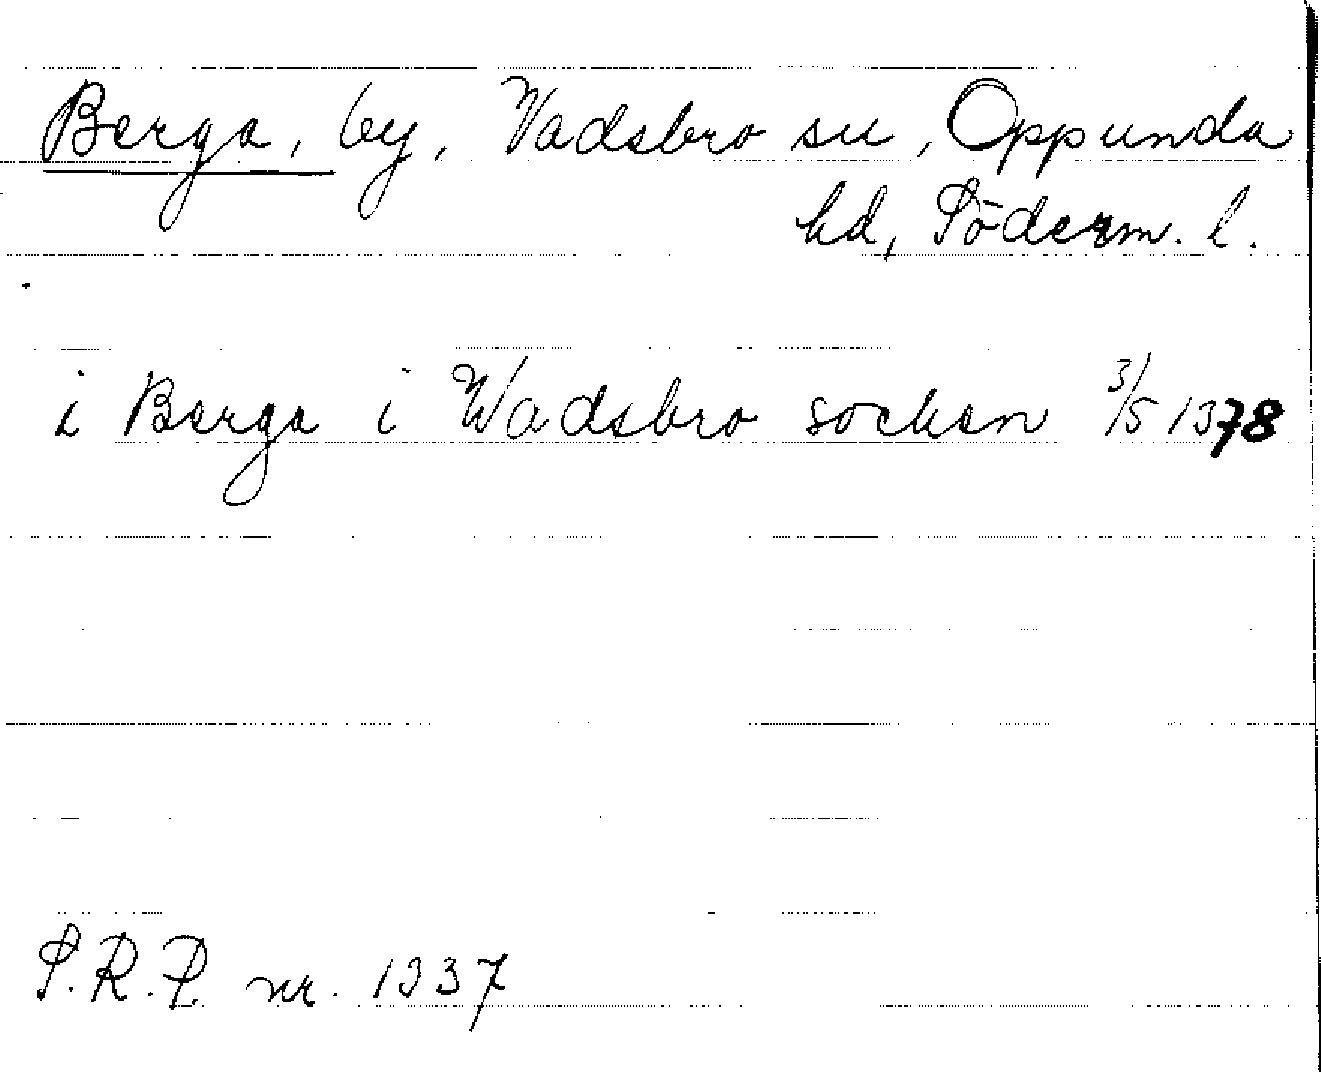 Berga, by, Vadsbro sn, Oppunda
hd, Söderm. l.
i Berga i Wadsbro socken 3/5 1378
S.R.P. nr. 1337